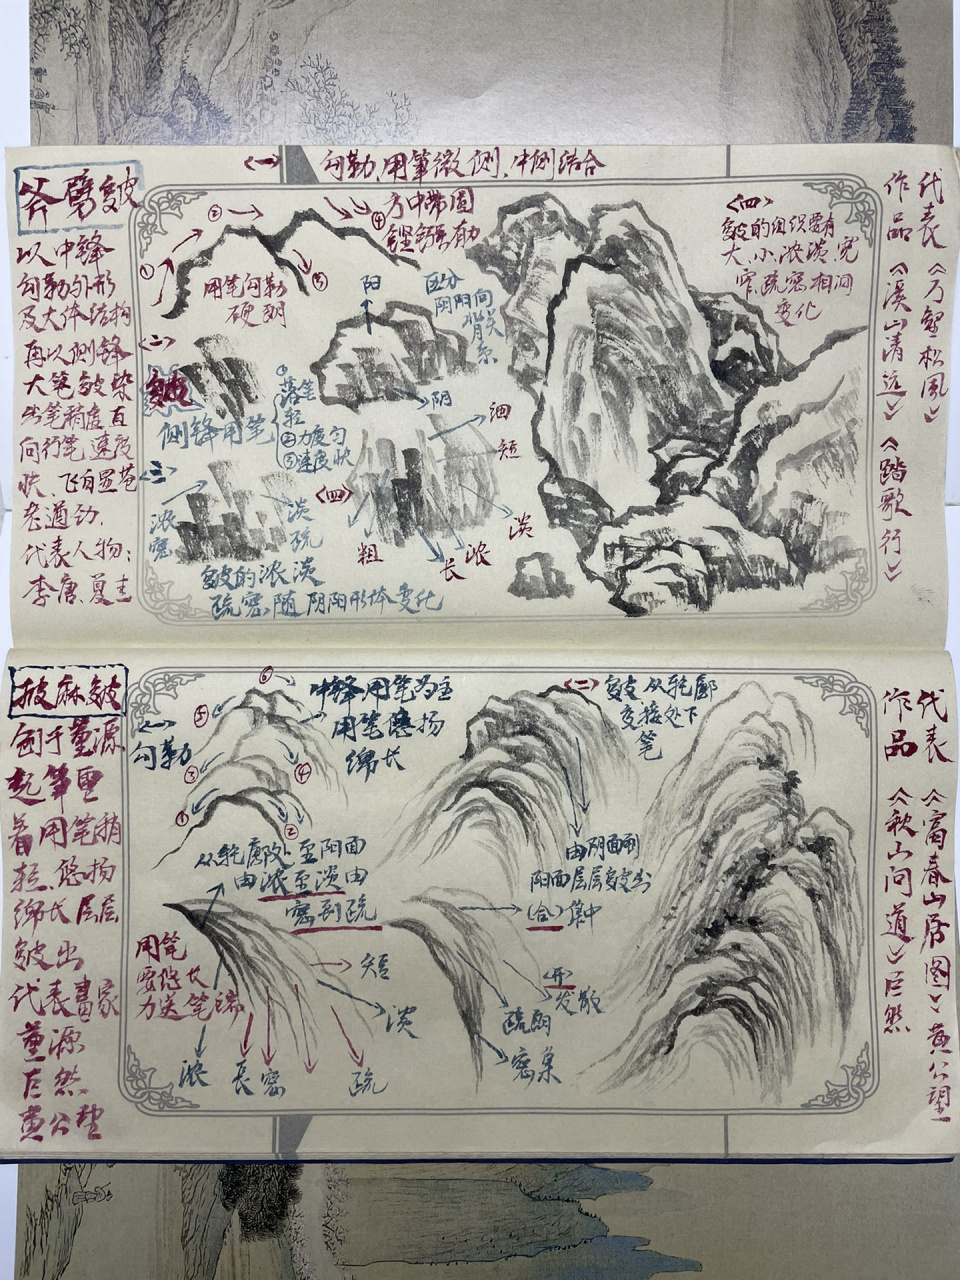 斧劈皴
以中锋
勾勒外形
及大体结构
再以侧锋
大笔皴染
出笔稍度直
向行笔速度
快、飞白显苍
老遒劲.
代表人物:
李唐、夏圭
<一> 勾勒,用筆微侧,中侧结合
① ② ③ ④
方中带圆
铿锵有力
用笔勾勒
硬朗
<二>
皴
侧锋用笔
①落笔
轻
②力度匀
③速度快
阳
区分
阴阳向
背关
系
阴
<三>
浓
密
淡
疏
皴的浓淡
疏密随阴阳形体变化
<四>
细
短
淡
浓
长
粗
<四>
皴的组织要有
大、小、浓淡、宽
窄,疏密相间
变化
代表
作品
《万壑松风》
《溪山清远》《踏歌行》
披麻皴
创于董源
起筆重
着用笔稍
轻、悠扬
绵长层层
皴出
代表畫家
董源
巨然
黄公望
<一>
勾勒
① ② ③ ④ ⑤ ⑥
中锋用笔为主
用笔悠扬
绵长
从轮廓改、至阳面
由浓至淡由
密到疏
用笔
要悠长
力送笔端
浓
長
密
疏
短
淡
<二> 皴从轮廓
交接处下
笔
由阴面到
阳面层层皴出
(合)集中
开
发散
疏朗
密集
代表
作品
《富春山居图》黄公望
《秋山问道》巨然